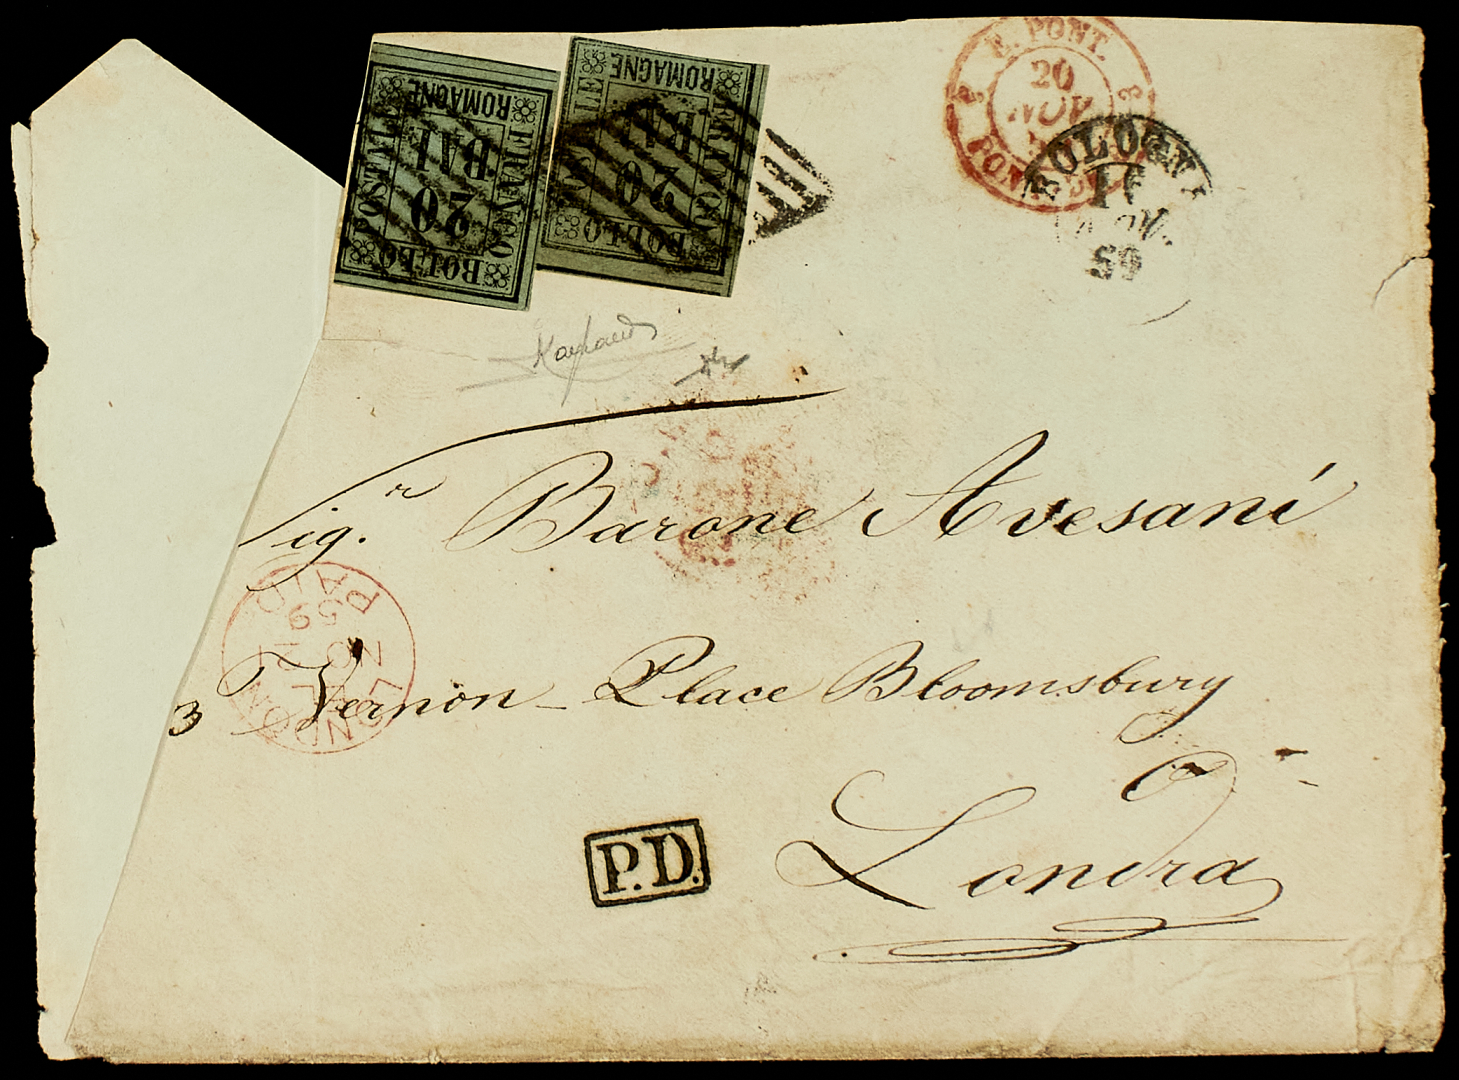 FRANCO
BOLLO
POSTALE
ROMAGNE
BAI
20
FRANCO
BOLLO
ROMAGNE
20
E. PONT.
20
NOV
BOLOGNA
NOV
59
Sig.r Barone Avesani
3 Vernon - Place Bloomsbury
Londra
LONDON
20
59
PAID
P.D.